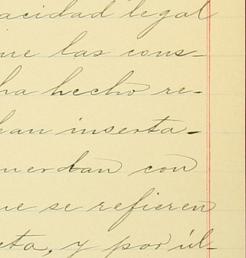 acidad legal
ue las cons-
ha hecho re-
han inserta-
uerdan con
ue se refieren
cta, y por úl-